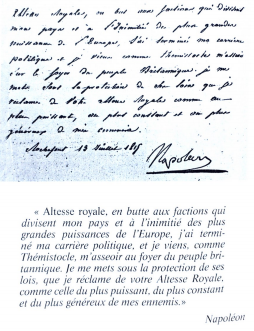 Altesse Royale, en but aux factions qui divisent
mon pays et à l'inimitié des plus grandes
puissances de l'Europe, j'ai terminé ma carrière
politique et je viens comme Thémistocle m'asseoir
sur le foyer du peuple Britannique. Je me
mets sous la protection de ses lois que je
réclame de votre altesse Royale comme au
plus puissant, au plus constant et au plus
généreux de mes ennemis.
Rochefort 13 Juillet 1815
Napoléon
« Altesse royale, en butte aux factions qui
divisent mon pays et à l'inimitié des plus
grandes puissances de l'Europe, j'ai termi-
né ma carrière politique, et je viens, comme
Thémistocle, m'asseoir au foyer du peuple bri-
tannique. Je me mets sous la protection de ses
lois, que je réclame de votre Altesse Royale,
comme celle du plus puissant, du plus constant
et du plus généreux de mes ennemis.»
Napoléon